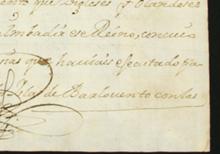 que Ingleses y Olandeses
ese Reino, con cuio
nas que haviais executado pa
Isla de Barlovento con las